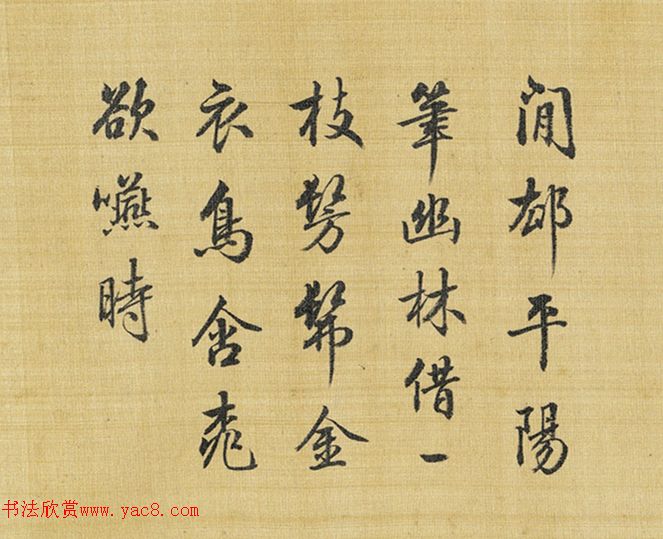 閒却平陽
筆幽林借一
枝髣髴金
衣鳥含桃
欲嚥時
书法欣赏www.yac8.com